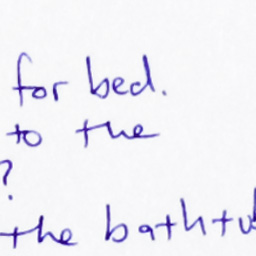 for bed.
to the
?
the bathtu